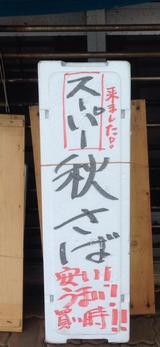 来ました!!
スーパー
秋さば
安い!!
うまい!!
買い時!!